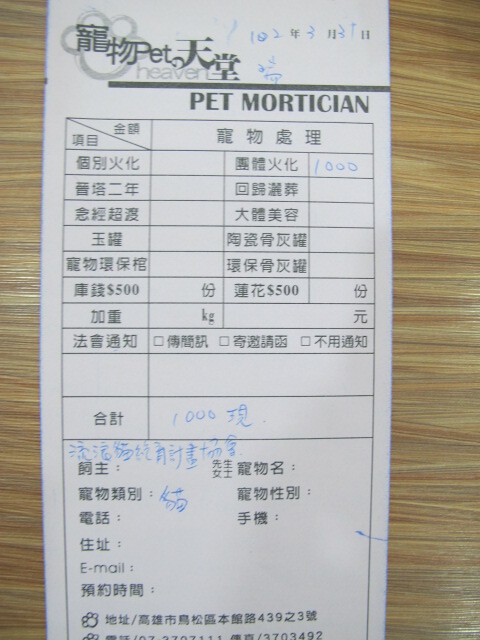 寵物Pet の天堂 102年3月31日
heaven
PET MORTICIAN
金額 項目 寵物處理
個別火化 團體火化 1000
晉塔二年 回歸灑葬
念經超渡 大體美容
玉罐 陶瓷骨灰罐
寵物環保棺 環保骨灰罐
庫錢$500 份 蓮花$500 份
加重 kg 元
法會通知 □傳簡訊 □寄邀請函 □不用通知
合計 1000 現
流浪貓絕育計畫協會
飼主： 先生 女士 寵物名：
寵物類別：貓 寵物性別：
電話： 手機：
住址：
E-mail：
預約時間：
地址/高雄市鳥松區本館路439之3號
電話/07-3707111 傳真/3703492